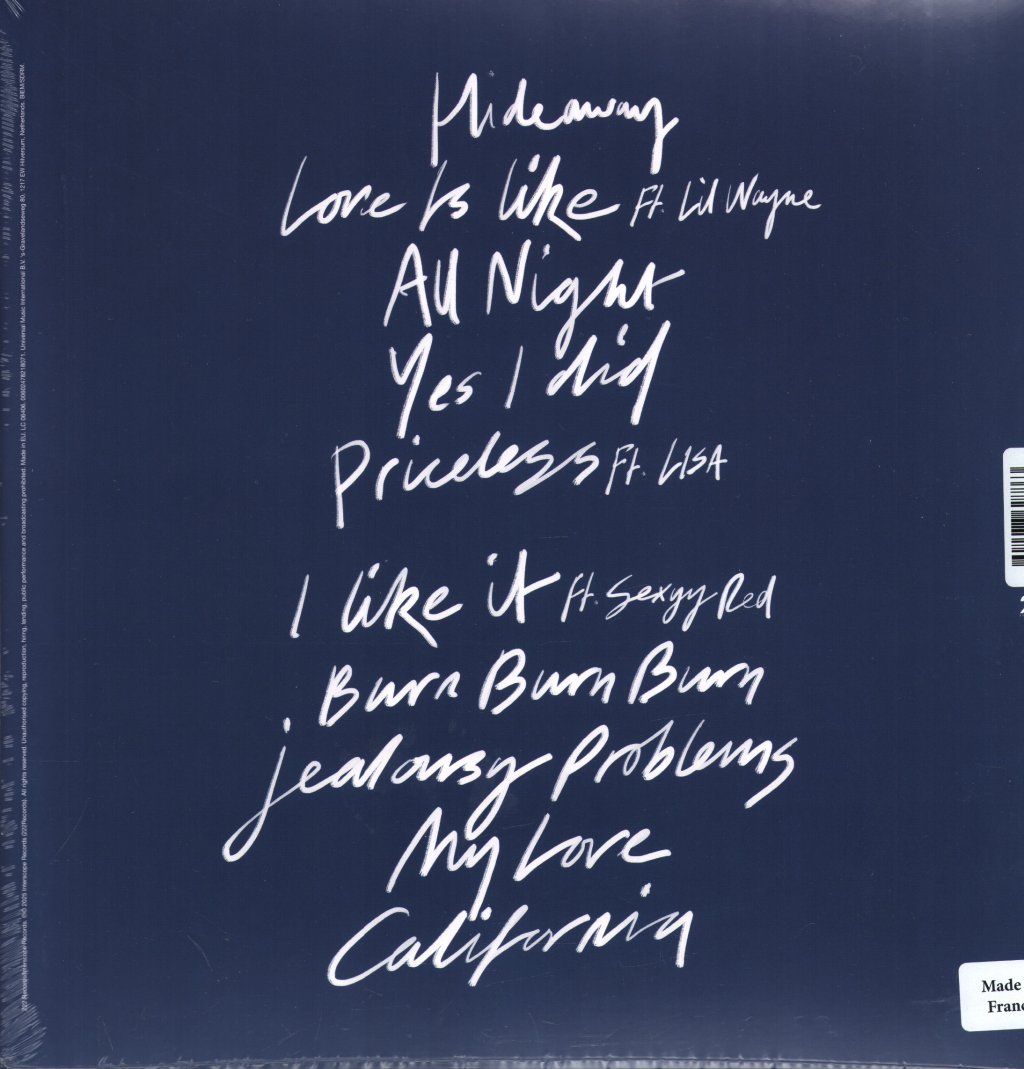 Hideaway
Love Is like Ft. Lil Wayne
All Night
Yes I did
Priceless Ft. LISA
I like it ft. Sexyy Red
Burn Burn Burn
jealousy Problems
My Love
California
Made
Franc
222 Records/Interscope Records. ℗© 2025 Interscope Records (222Records). All rights reserved. Unauthorised copying, reproduction, hiring, lending, public performance and broadcasting prohibited. Made in EU. LC 06406. 00602478218071. Universal Music International B.V. 's-Gravelandseweg 80, 1217 EW Hilversum, Netherlands. BIEM/SDRM.